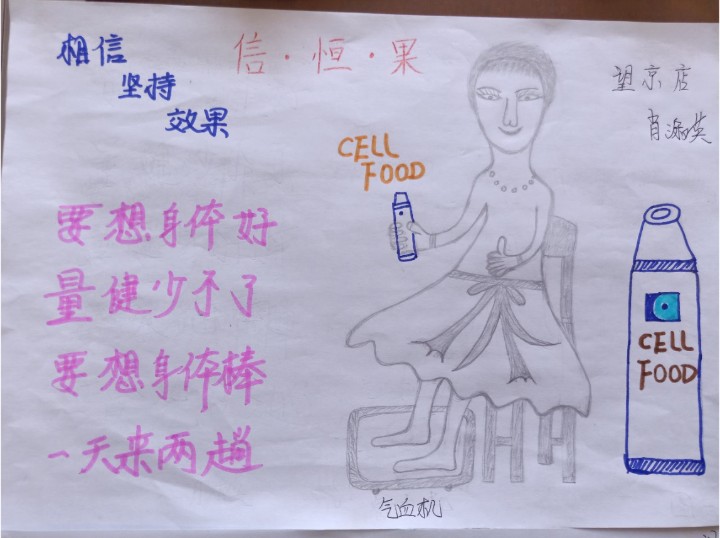 相信
坚持
效果
信·恒·果
望京店
肖淑英
CELL
FOOD
要想身体好
量健少不了
要想身体棒
一天来两趟
CELL
FOOD
气血机